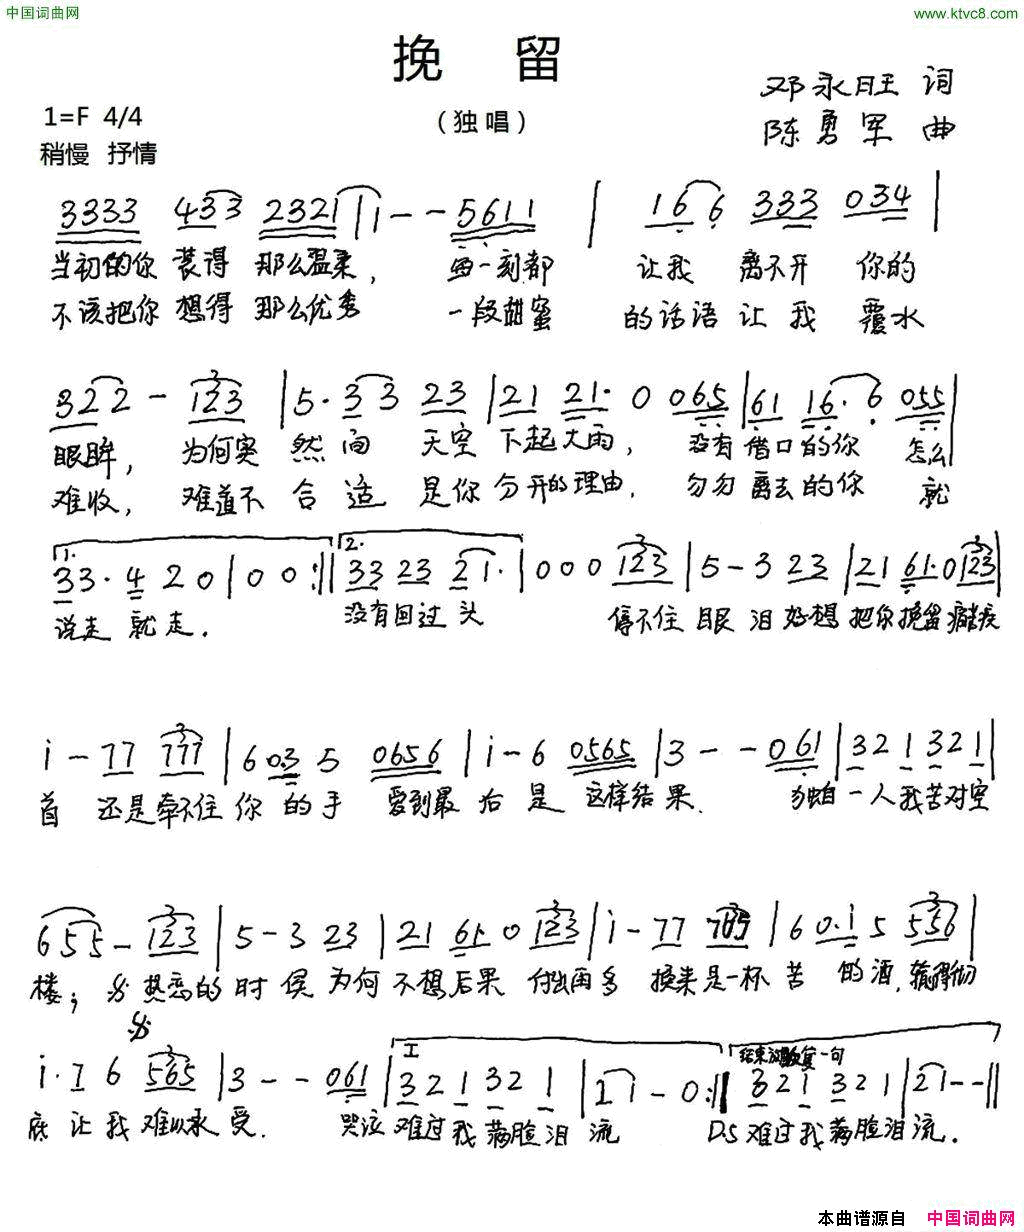 中国词曲网
www.ktvc8.com
挽 留
邓永旺 词
1=F 4/4
(独唱)
陈勇军 曲
稍慢 抒情
3333 433 2321 | 1 - - 5611 | 166 333 034 |
当初的你 装得 那么温柳, 每一刻都 让我 离不开 你的
不该把你 想得 那么优秀 一段甜蜜 的话语 让我 覆水
322 - 123 | 5· 33 23 | 21 21· 0 065 | 61 16· 6 055 |
眼眸, 为何突 然间 天空 下起大雨, 没有借口的你 怎么
难收, 难道不 合适 是你 分开的理由, 匆匆离去的你 就
1.
2.
33·4 20 | 00 :|| 33 23 21· | 000 123 | 5 - 3 23 | 21 61·0 123 |
说走 就走. 没有回过头 停不住 眼泪 好想 把你挽留
i - 77 777 | 6 03 5 0656 | i - 6 0565 | 3 - - 061 | 321 321 |
首 还是牵不住 你的手 爱到最后是 这样结果. 独自一人我苦对空
655 - 123 | 5 - 3 23 | 21 61· 0 123 | i - 77 765 | 6 0·i 5 556 |
楼; 热恋的时候 为何不想后果 付出再多 换来是一杯苦的酒, 输得彻
I
结束
i· i 6 565 | 3 - - 061 | 321 321 | 21 - 0 :|| 321 321 | 21 - - ||
底 让我难以承受. 哭泣 难过我满脸泪流 D.S 难过我满脸泪流.
本曲谱源自 中国词曲网